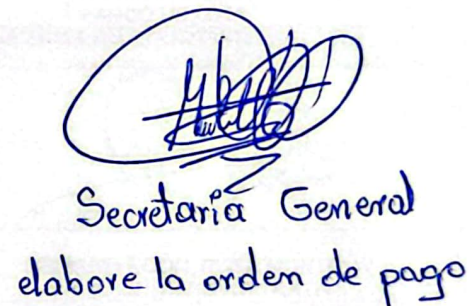 Secretaria General
elabore la orden de pago